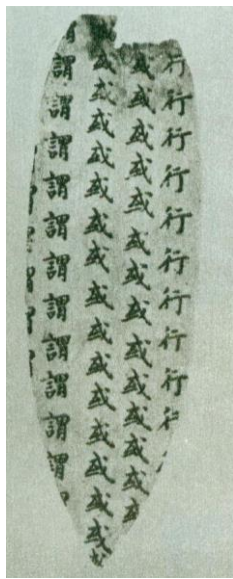 行行行行行行行行行行
或或或或或或或或或或或或或
或或或或或或或或或或或或或或或
謂謂謂謂謂謂謂謂謂謂謂